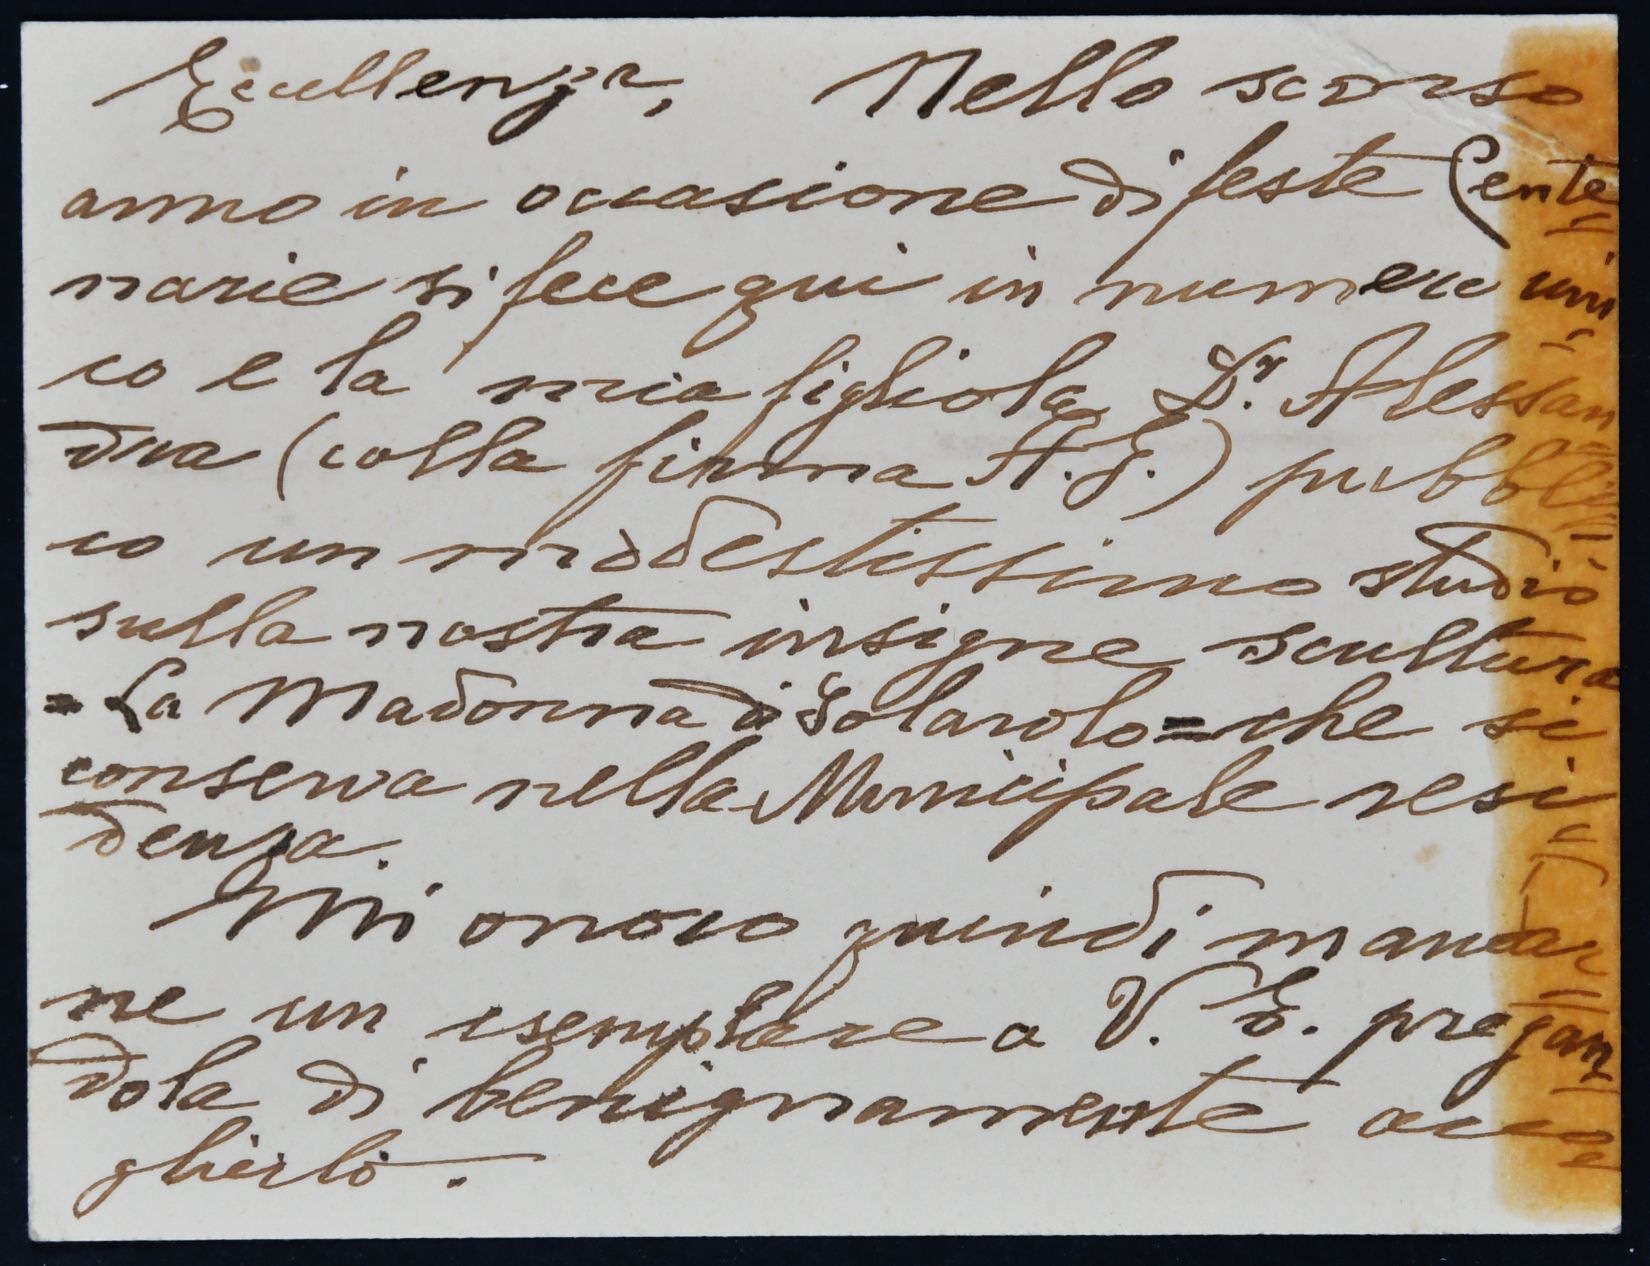 Eccellenza, Nello scorso
anno in occasione di feste Cente=
narie si fece qui in numero uni=
co e la mia figliola Dr. Alessan=
dra (colla firma A. G.) pubbli=
co un modestissimo studio
sulla nostra insigne scultura
= La Madonna di Solarolo = che si
conserva nella Municipale resi=
denza.
Mi onoro quindi mandar=
ne un esemplare a V. E. pregan=
dola di benignamente acco=
glierlo.